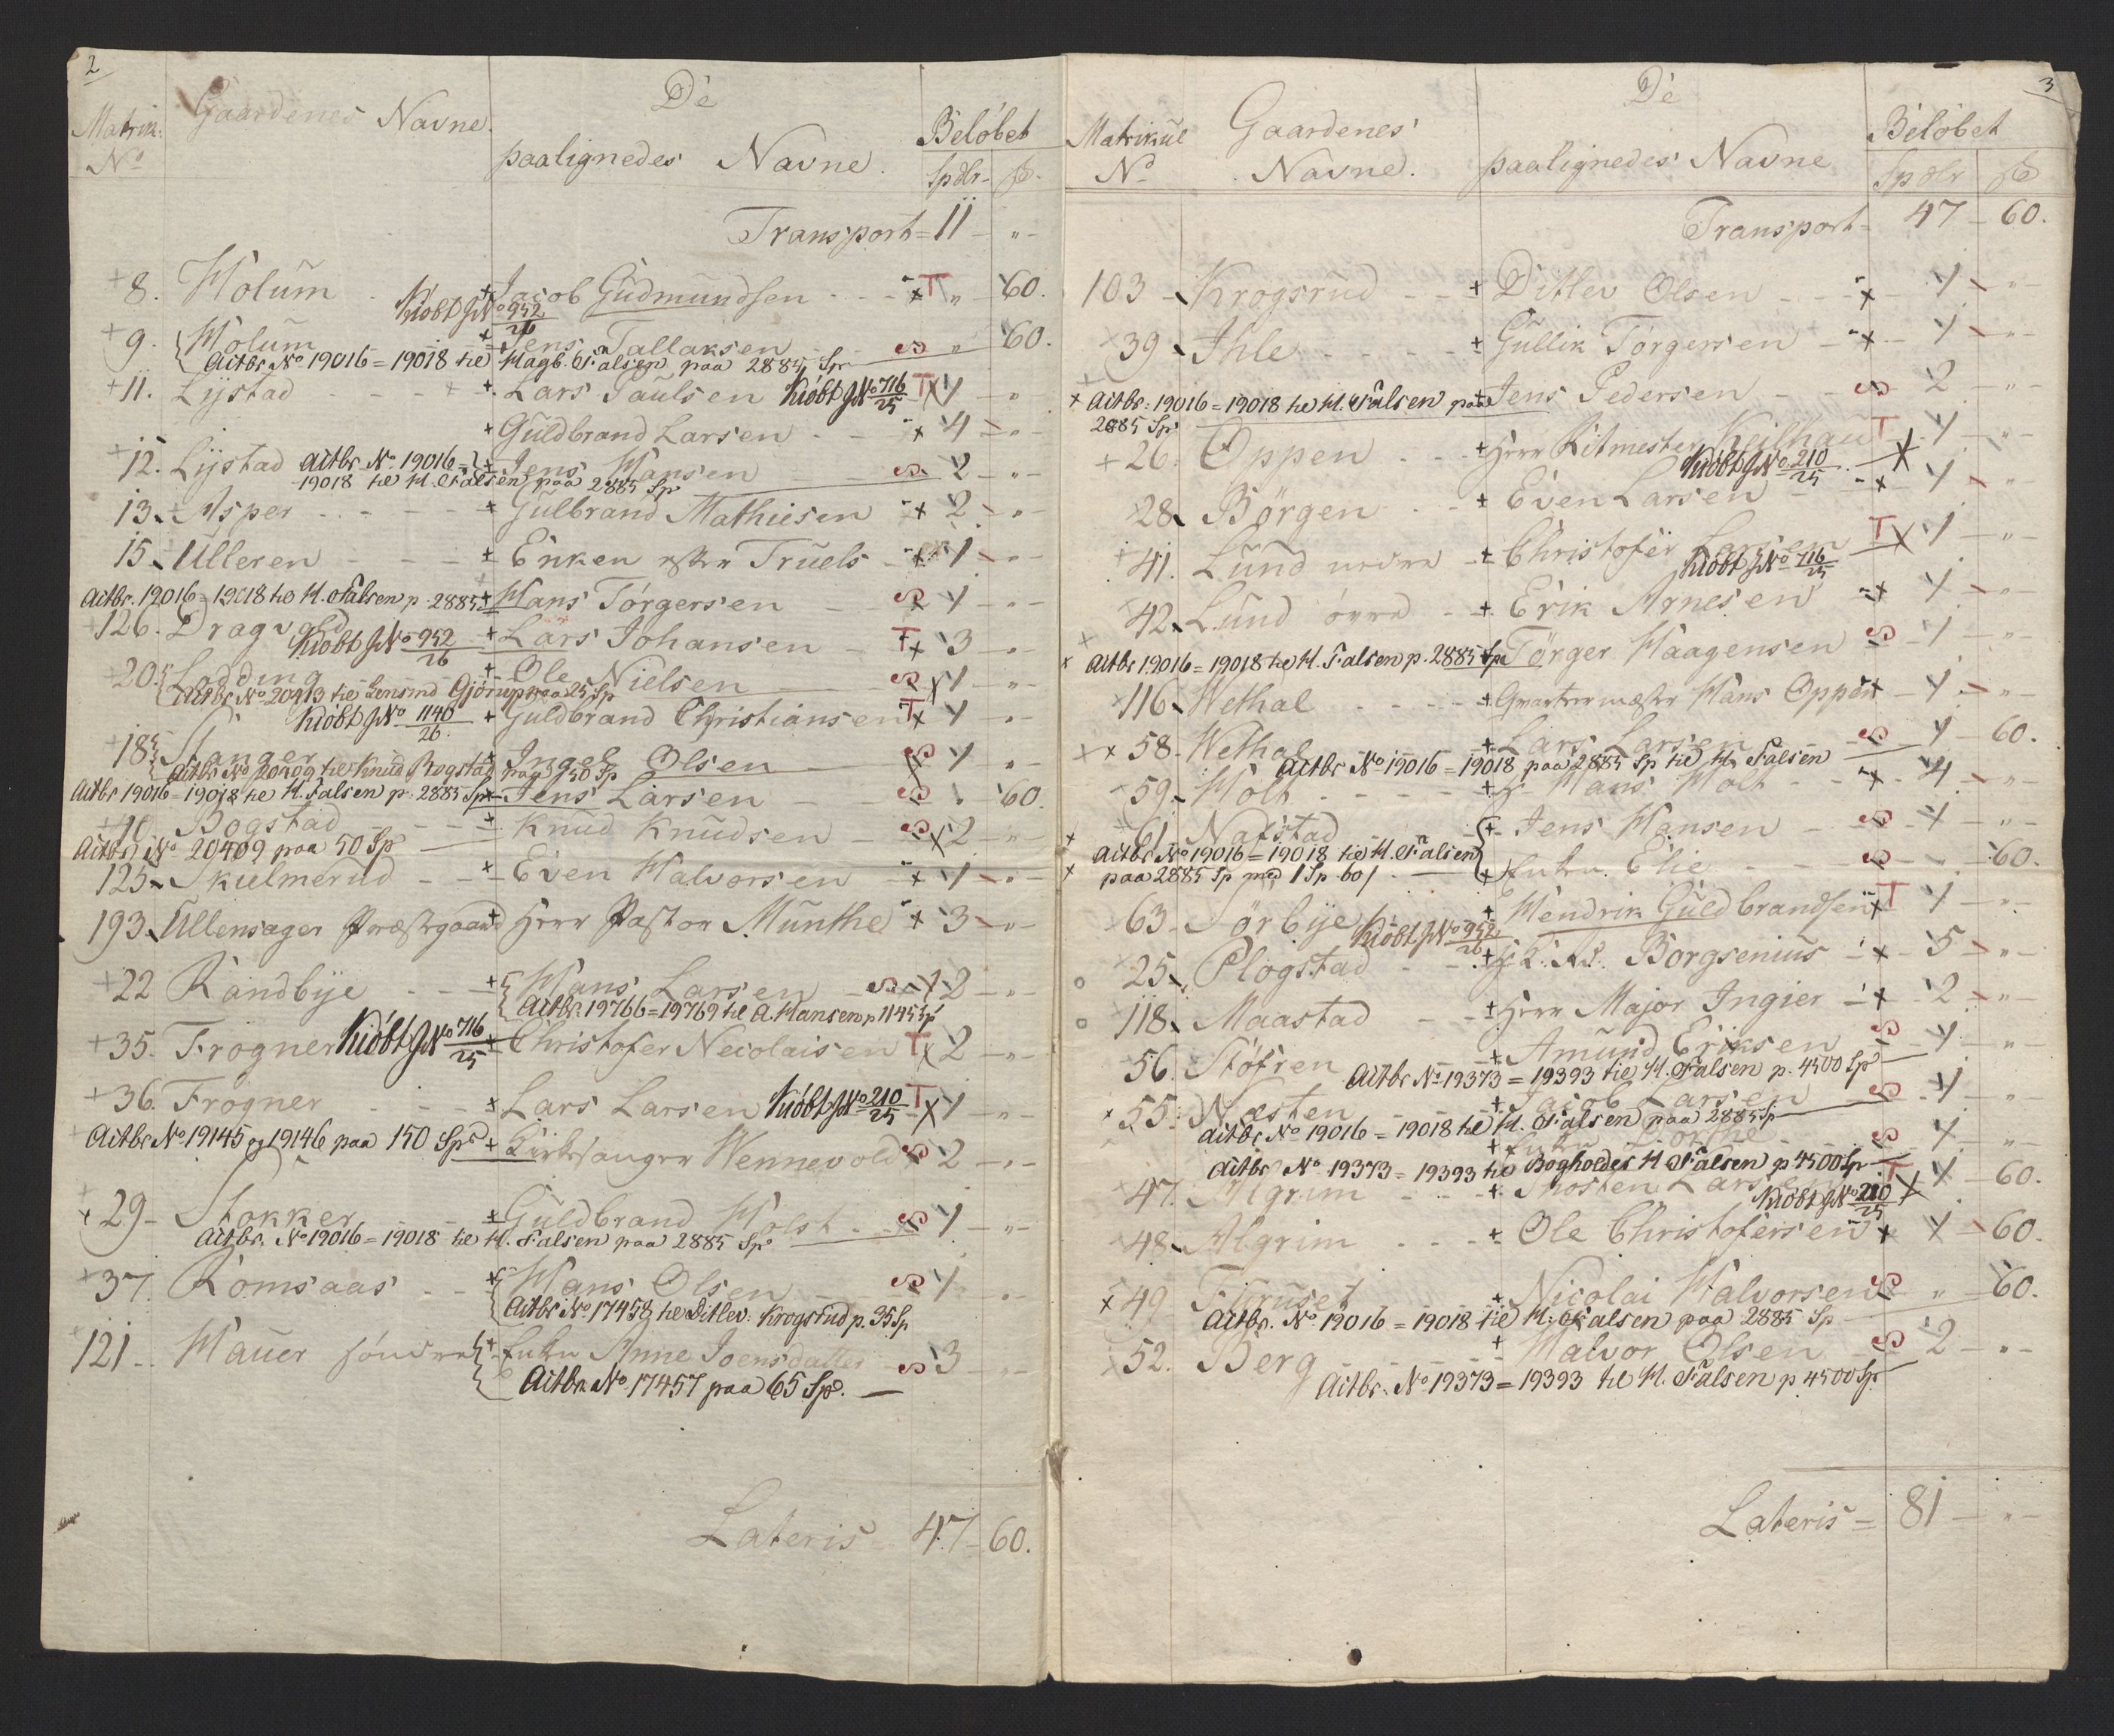 2
Matrik: Gaardenes Navne. De Beløbet
No paalignedes Navne. Spdlr. ß.
Transport = 11 - " -
8. Holum Jacob Gudmundsen T " 60.
Kiöbt J No 952/26
9. Holum Jens Tallaksen S " 60.
Aitbr No 19016 = 19018 til Magb. Falsen paa 2885 Sp
11. Lystad Lars Paulsen Kiöbt J No 716/25 T 1 "
Guldbrand Larsen 4 - " -
12. Lystad Aitbr No 19016 = Jens Hansen S 2 - " -
19018 til M. Falsen paa 2885 Sp
13. Asper Gulbrand Mathiesen 2 - " -
15. Ulleren Enken efter Truels 1 - " -
Aitbr. 19016 = 19018 til M. Falsen p. 2885 Hans Törgersen S 1 - " -
126. Dragvold Lars Johansen T 3 - " -
Kiöbt J No 952/26
20. Lodding Ole Nielsen S 1 - " -
Aitbr No 20413 til Lensmd Gjörup paa 25 Sp
Kiöbt J No 1140/26 Guldbrand Christiansen T 1 - " -
18 Stanger Inger Olsen S 1 - " -
Aitbr No 20409 til Knud Bogstad paa 50 Sp
Aitbr 19016 = 19018 til M. Falsen p. 2885 Sp Jens Larsen S " 60.
Bogstad Knud Knudsen S 2 - " -
Aitbr No 20409 paa 50 Sp
125. Skielmerud Even Halvorsen 1 - " -
193. Ullensager Præstegaard Herr Pastor Munthe 3 - " -
22 Randbye Hans Larsen S 2 - " -
Aitbr. 19766 = 19769 til A. Hansen p. 1145 Sp
35. Frogner Kiöbt J No 716/25 Christofer Necolaisen T 2 - " -
36. Frogner Lars Larsen Kiöbt J No 210/25 T 1 - " -
Aitbr No 19145 og 19146 paa 150 Spd Kirkesanger Wennevold S 2 - " -
29 - Stokker Guldbrand Holst S 1 - " -
Aitbr. No 19016 = 19018 til M. Falsen paa 2885 Sp
37. Romsaas Hans Olsen S 1 - " -
Aitbr No 17458 til Ditlev Krogsrud p. 35 Sp
121 - Hauer söndre Enke Anne Joensdatter S 3 - " -
Aitbr. No 17457 paa 65 Sp.
Lateris = 47 - 60.
3
Matrikul Gaardenes De Beløbet
No Navne. paalignedes Navne Spdlr ß
Transport = 47 - 60.
103 - Krogsrud Ditlev Olsen 1 - " -
39 - Ihle Gullik Törgersen 1 - " -
Aitbr. 19016 = 19018 til M. Falsen paa Jens Pedersen S 2 - " -
2885 Sp
26. Oppen Herr Ritmester Keilhau T 1 - " -
Kiöbt J No 210/25
28. Börgen Even Larsen 1 - " -
41. Lund nedre Christofer Larsen T 1 - " -
Kiöbt J No 716/25
42. Lund övre Erik Arnesen 1 - " -
Aitbr 19016 = 19018 til M. Falsen p. 2885 Sp Törger Haagensen S 1 - " -
116 - Wethal Qvarteermester Hans Oppen 1 - " -
58 - Wethal Lars Larsen S 1 - 60.
Aitbr No 19016 = 19018 paa 2885 Sp til M. Falsen
59. Holt Hr Hans Holt 4 - " -
61. Nafstad Jens Hansen S 1 - " -
Aitbr No 19016 = 19018 til M. Falsen
paa 2885 Sp med 1 Sp 60 ß Enke Elie S " 60.
63. Sörbye Hendrik Guldbrandsen T 1 - " -
Kiöbt J No 952/26
25. Plogstad Borgsenius 5 - " -
118. Maastad Herr Major Ingier 2 - " -
56. Stöfren Amund Eriksen S 1 - " -
Aitbr No 19373 = 19393 til M. Falsen p. 4500 Sp
55. Næsten Jacob Larsen S 1 - " -
Aitbr No 19016 = 19018 til M. Falsen paa 2885 Sp
Enke S 1 - " -
Aitbr No 19373 = 19393 til Bogholder M Falsen p 4500 Sp
47. Algrim Thosten Larsen T 1 - 60.
Kiöbt J No 210/25
48. Algrim Ole Christofersen 1 - 60.
49 Furuset Nicolai Halvorsen S " 60.
Aitbr. No 19016 = 19018 til M. Falsen paa 2885 Sp
52. Berg Halvor Olsen S 2 - " -
Aitbr. No 19373 = 19393 til M. Falsen p 4500 Sp
Lateris = 81 - " -